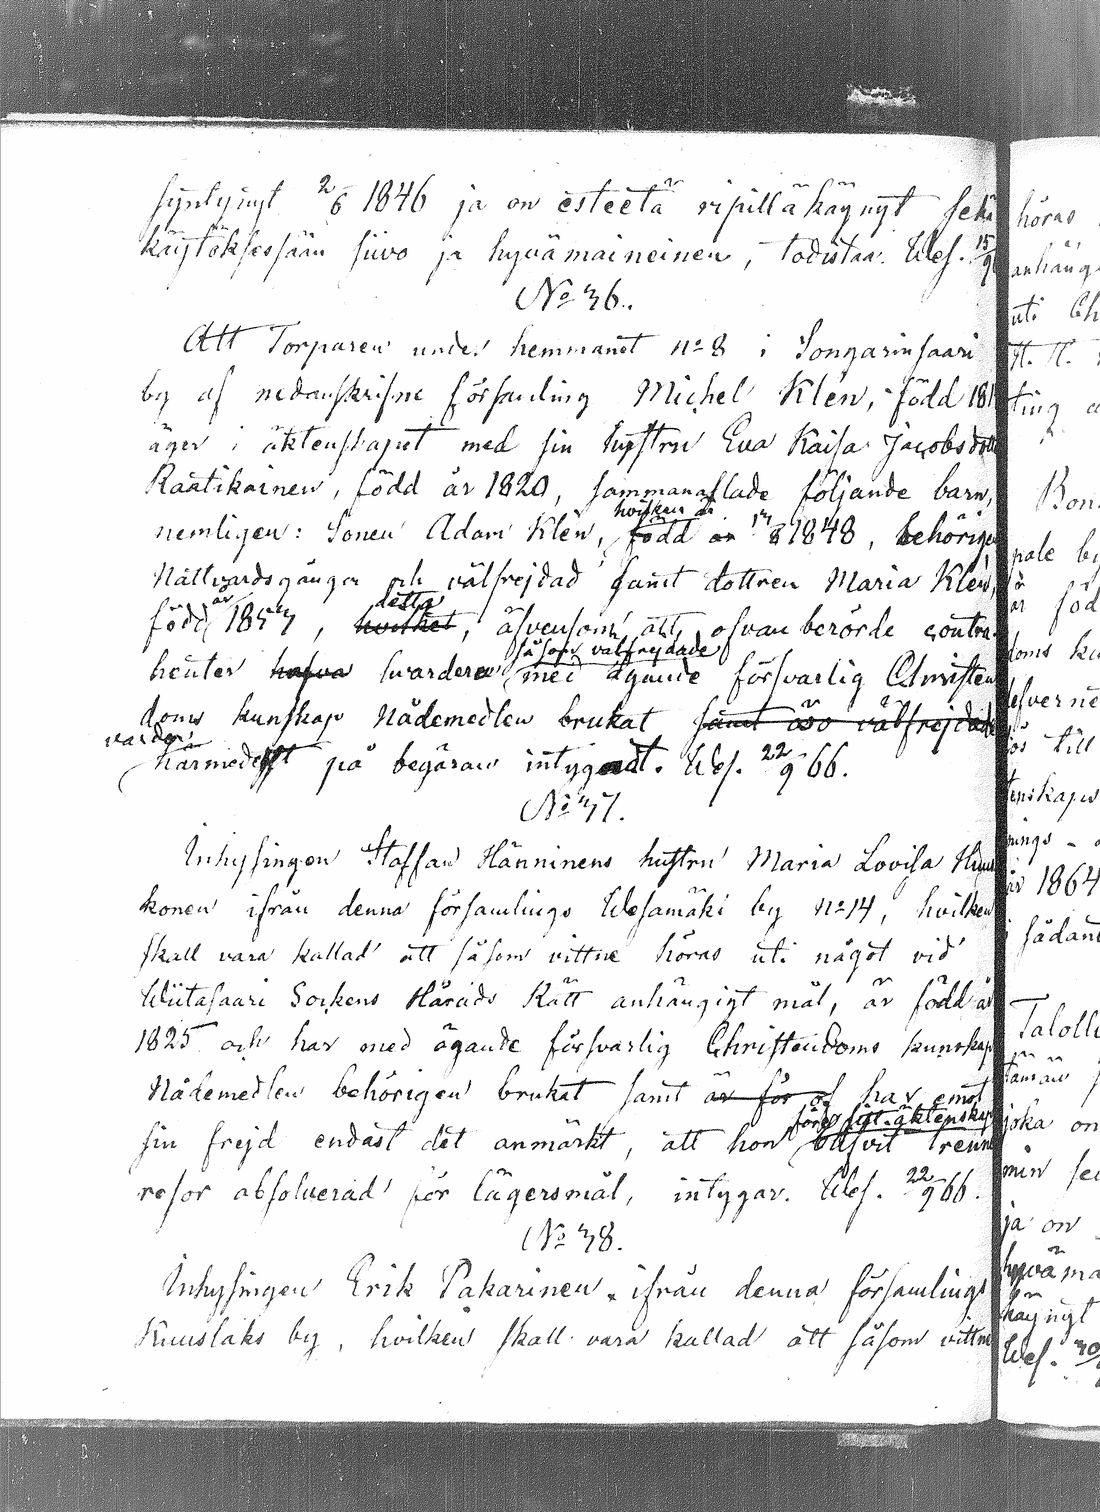 syntynyt 2/6 1846 ja on esteetä ripilläkäynyt sekä
käytöksessään siivo ja hyvämaineinen, todistaa. Wes. 15/9
No 36.
Att Torparen under hemmanet no 8 i Songarinsaari
by af nedanskrifne församling Michel Klén, född 181
äger i äktenskapet med sin hustru Eva Kaisa Jacobsdott
Raatikainen, född år 1820, sammanaflade följande barn,
hvilken är
nemligen: Sonen Adam Klén, född år 13/8 1848, behörigen
Nattvardsgången och välfrejdad samt dottren Maria Klén,
år detta
född 1853, hvilket, äfvensom att ofvanberörde contra-
såsom välfrejdade
henter hafva hvardera med ägande försvarlig Christen
doms kunskap Nådemedlen brukat samt äro välfrejdade
varder
härmedelst på begäran intygadt. Wes. 22/9 66.
No 37.
Inhysingen Staffan Hänninens hustru Maria Lovisa
konen ifrån denna församlings Wesamäki by no 14, hvilken
skall vara kallad att såsom vittne höras uti något vid
Wiitasaari Sockens Härads Rätt anhängigt mål, är född år
1825 och har med ägande försvarlig Christendoms kunskap
Nådemedlen behörigen brukat samt är för of har emot
före sitt äktenskap
sin frejd endast det anmärkt, att hon blifvit trenne
resor absolverad för lägersmål, intygar. Wes. 22/9 66.
No 38.
Inhysingen Erik Pakarinen, ifrån denna församlings
Kuuslaks by, hvilken skall vara kallad att såsom vittne
höras
anhäng
uti Ch
ting
Bon
pale by
är föd
doms ku
till
tenskaps
nings-
år 1864
i sådant
Talolli
tämän
joka on
min
ja on
hyväma
käynyt
Wes. 30